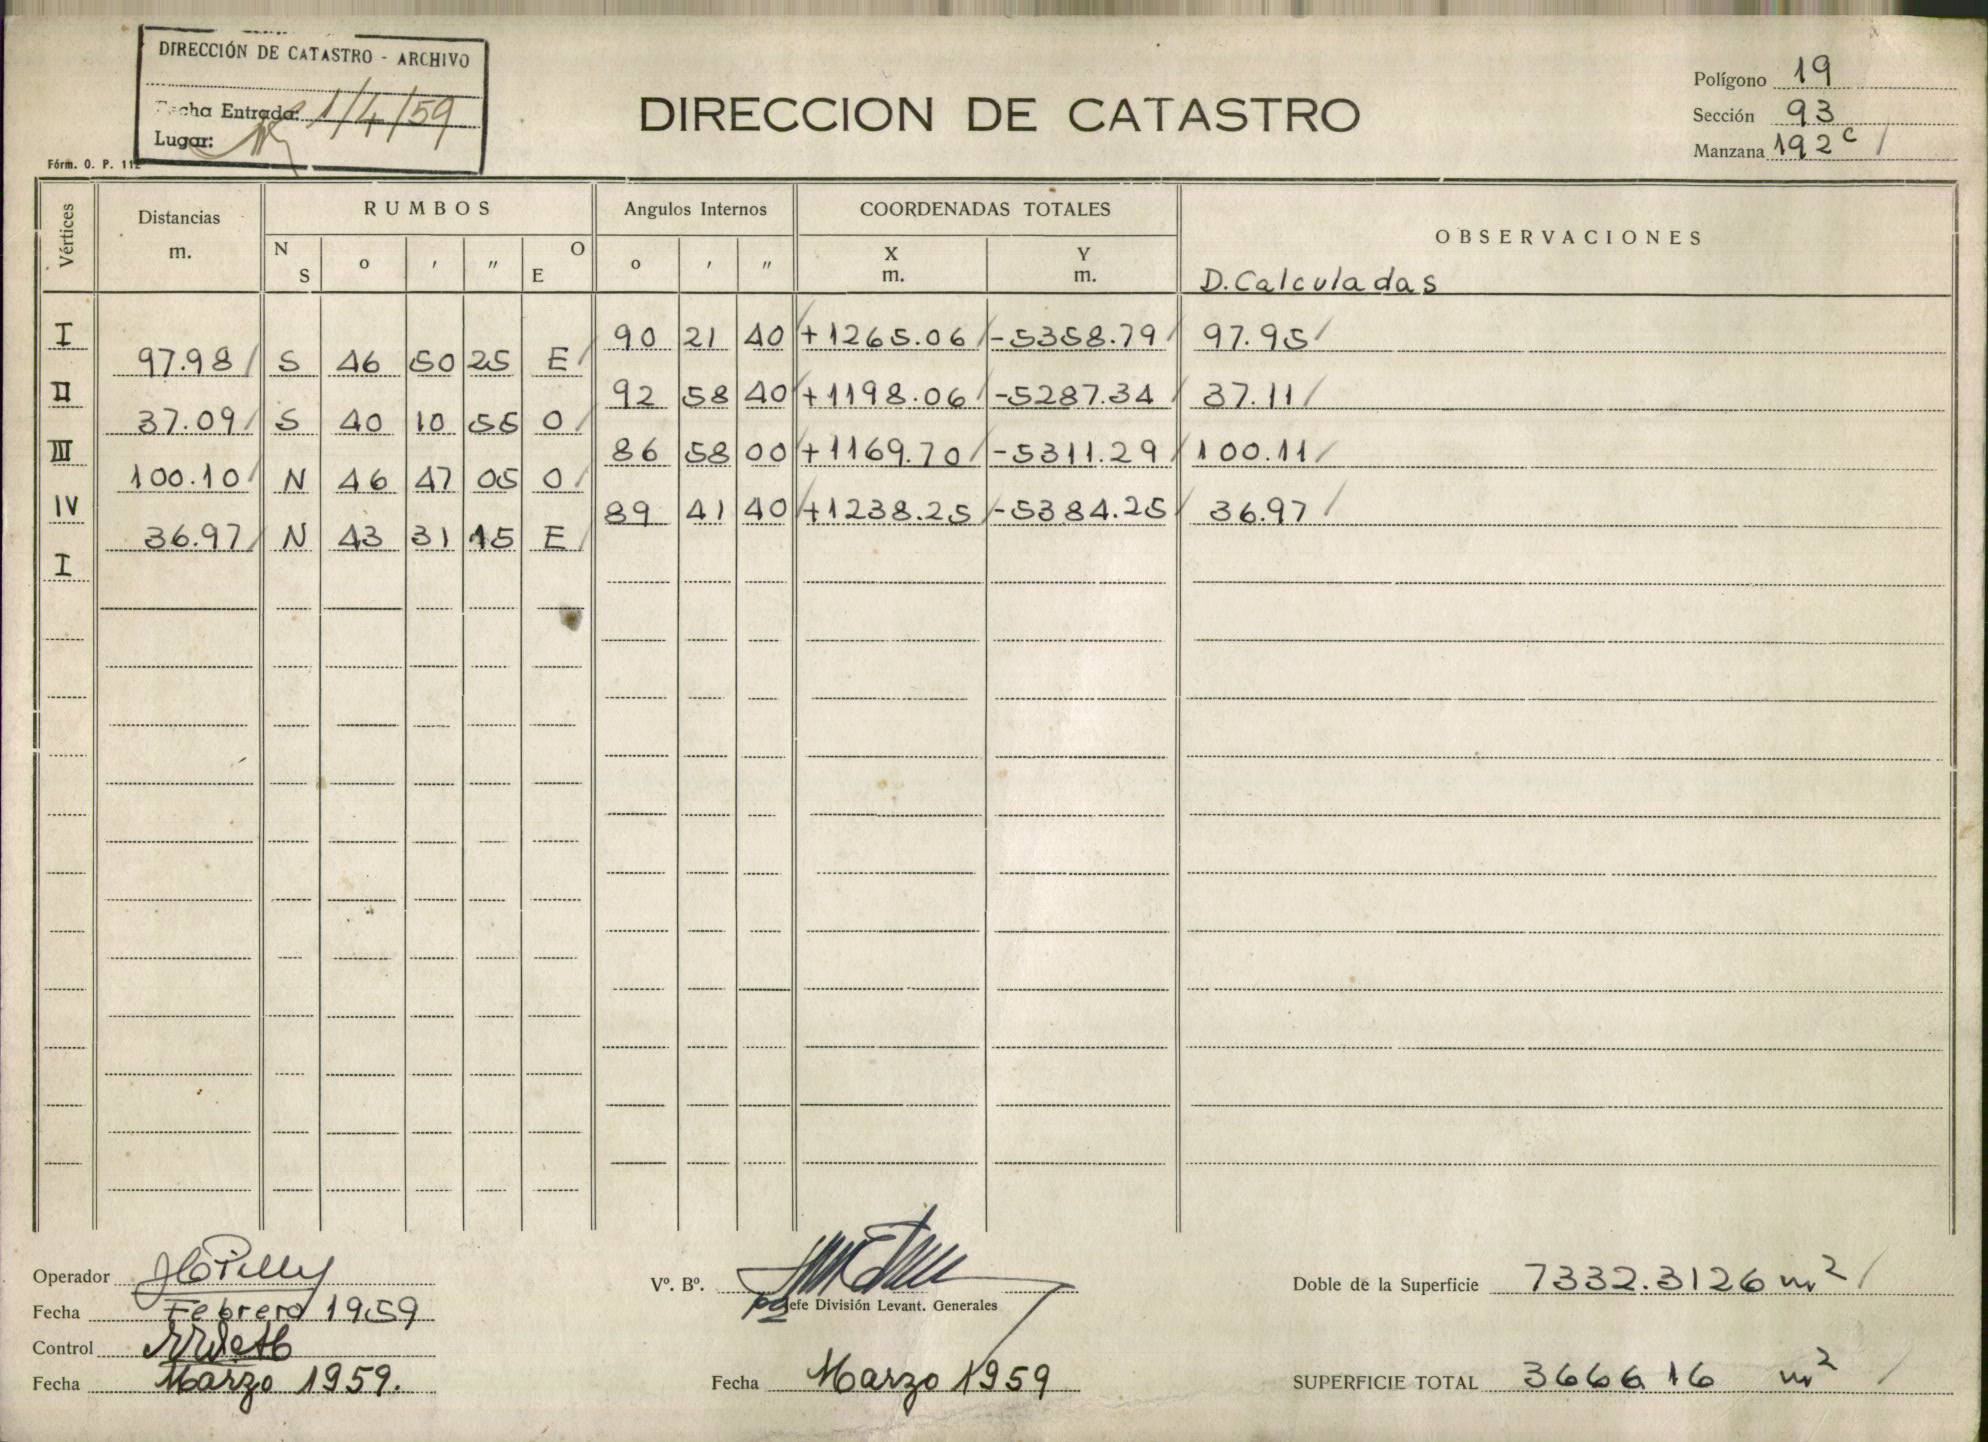 DIRECCIÓN DE CATASTRO - ARCHIVO
Fecha Entrada: 1/4/59
Lugar:
Fórm. O. P. 112
DIRECCION DE CATASTRO
Polígono 19
Sección 93
Manzana 192c /
Vértices Distancias m. RUMBOS Angulos Internos COORDENADAS TOTALES OBSERVACIONES
N S o ' " O E o ' " X m. Y m. D. Calculadas
I 90 21 40 +1265.06/ -5358.79/ 97.95/
97.98/ S 46 50 25 E/
II 92 58 40 +1198.06/ -5287.34/ 37.11/
37.09/ S 40 10 55 O/
III 86 58 00 +1169.70/ -5311.29/ 100.11/
100.10/ N 46 47 05 O/
IV 89 41 40 +1238.25/ -5384.25/ 36.97/
36.97/ N 43 31 15 E/
I
Operador
Fecha Febrero 1959
Control
Fecha Marzo 1959.
Vº. Bº.
Jefe División Levant. Generales
Fecha Marzo 1959
Doble de la Superficie 7332.3126 m2 /
SUPERFICIE TOTAL 3666.16 m2 /